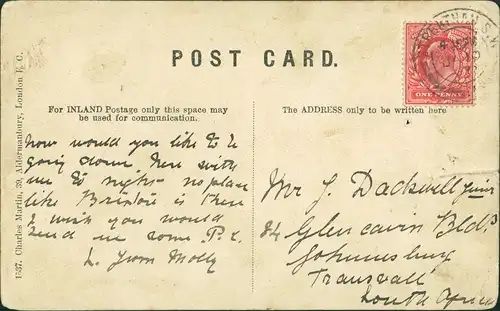 POST CARD.
ONE PENNY
For INLAND Postage only this space may
be used for communication.
The ADDRESS only to be written here
how would you like to be
going down here with
me to night no place
like Brixton is there
I wish you would
send me some P.C.
L. from Molly
Mr J. Dackwell Junr
84 Glencairn Bldgs
Johannesburg
Transvaal
South Africa
1537. Charles Martin, 39, Aldermanbury, London E.C.